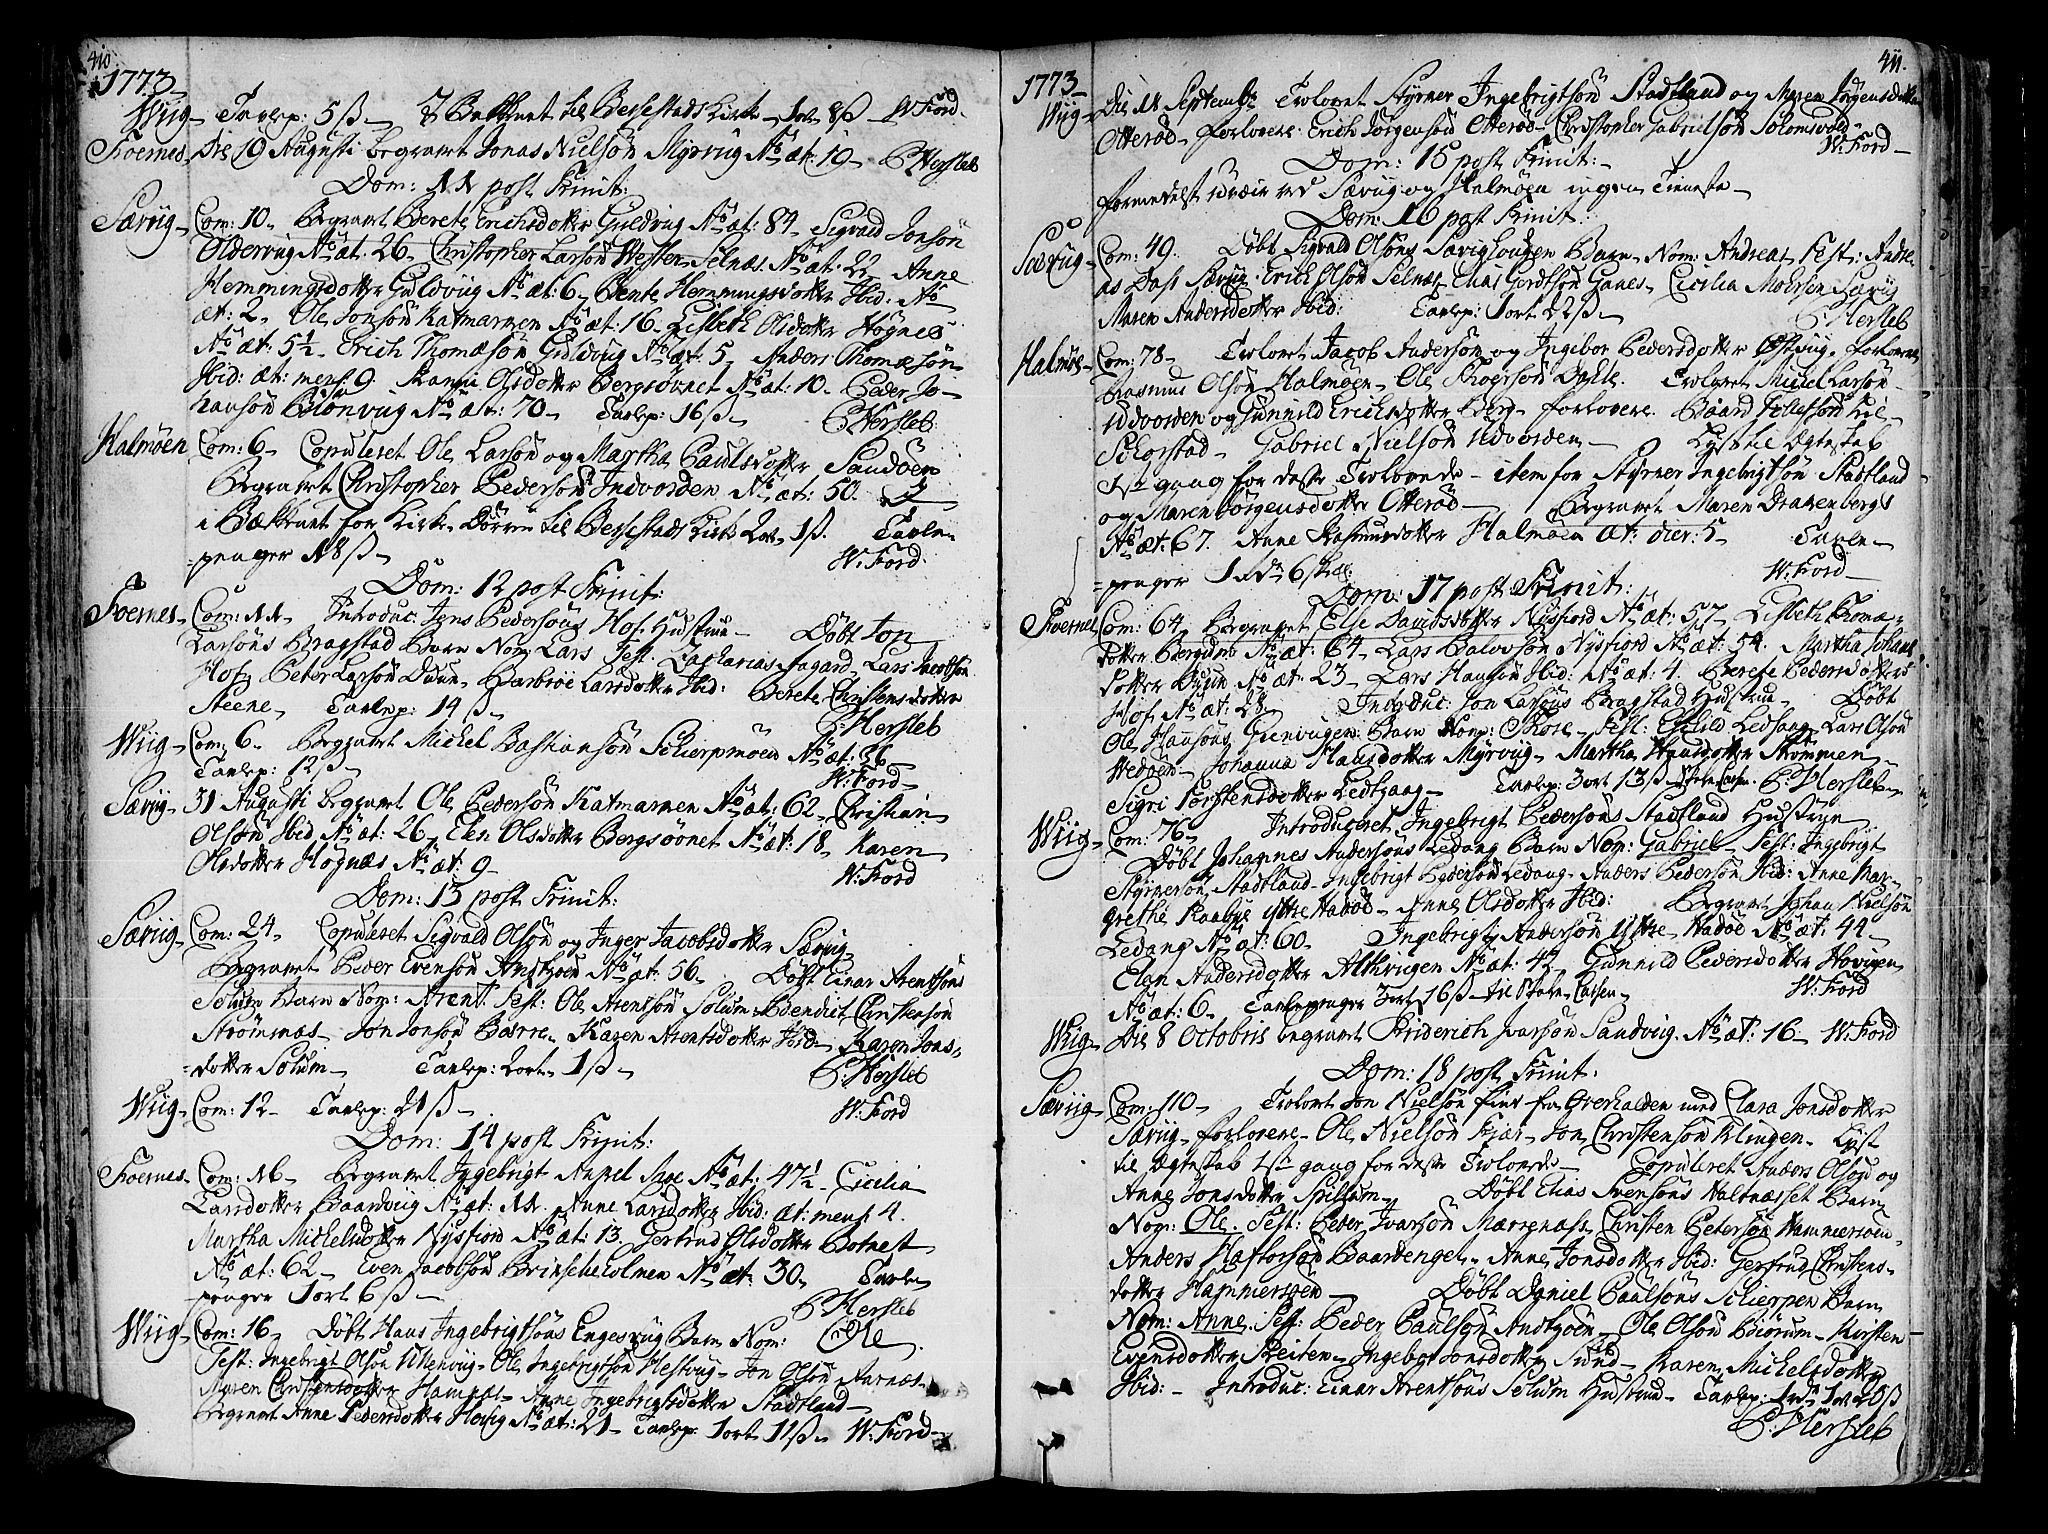 410
1773
Wiig Tavlep: 5 ß I Bækkenet til Bersestads Kirke 1 ort 8 ß W: Ford
Foernes Die 19 Augusti begravet Jonas Nielsön Myrvug No æt: 19 P: Hersleb
Dom: 11 post Trinit:
Særvig Com: 10 Begravet Berete Erichsdotter Guldvug No æt: 84 Sigvald Jonsön
Oldervug No æt: 26 Christopher Larsön Wester Selnæs No æt: 22 Anne
Hemmingsdotter Guldvug No æt: 6 Bente Hemmingsdotter Ibid: No
æt: 2 Ole Jonsön Katmarmen No æt: 16 Lisbeth Olsdotter Högnes
No æt: 5½ Erich Thomæsön Guldvug No æt: 5 Anders Thomæsön
Ibid: æt: mens: 9. Olsdotter Bergsövnet No æt: 10 Peder Jo-
hansön Biönvug No æt: 70 Tavlep: 16 ß P: Hersleb
Halmöen Com: 6 Copuleret Ole Larsön og Martha Paulsdotter Sandöen
Begravet Christopher Pedersön Indvorden No æt: 50. I
i Bækkenet for Kirke Dörren til Bersestads Kirke 2 ort 1 ß. Tavle-
penger 18 ß W: Ford
Dom: 12 post Trinit:
Foernes Com: 11 Introduc: Jens Pedersöns Hof: Hustrue Döbt Jon
Larsöns Bragstad Barn Nom: Lars Test: Zacharias Aagard Lars Jacobsön
Hof: Peter Larsön Duun Barbroe Larsdotter Ibid: Berete Christensdotter
Steene Tavlep: 14 ß P: Hersleb
Wiig Com: 6 Begravet Michel Bastiansön Schierpmöen No æt: 56
Tavlep: 12 ß W: Ford
Særvig 31 Augusti begravet Ole Pedersön Katmarmen No æt: 62 Christian
Olsön Ibid No æt: 26 Elen Olsdotter Bergsövnet No æt: 18 Karen
Olsdotter Högnæs No æt: 9 W: Ford
Dom: 13 post Trinit:
Særvig Com: 24 Copuleret Sigvald Olsön og Inger Jacobsdotter Særvig
Begravet Peder Evensön Andtzöen No æt: 56 Döbt Einar Arentsöns
Solum Barn Nom: Arent. Test: Ole Arentsön Solum Bendict Christensön
Strömnæs Jon Jonsön Bærre Karen Arentsdotter Ibid Karen Jons-
dotter Solum Tavlep: 2 ort 1 ß P: Hersleb
Wiig Com: 12 Tavlep: 21 ß W: Ford
Dom: 14 post Trinit:
Foernes Com: 16 Begravet Ingebrigt No æt: 47½ Cicilia
Larsdotter Baardvug No æt: 11. Anne Larsdotter Ibid: æt: mens 4.
Martha Michelsdotter Nysfiord No æt: 13. Gertrud Olsdotter Botnest
No æt: 62 Even Jacobsön Brinscheholmen No æt: 30 Tavle-
penger 1 ort 6 ß P: Hersleb
Wiig Com: 16 Döbt Hans Ingebrigtsöns Engesvug Barn Nom: Ole
Test: Ingebrigt Olsön Utlenvig Ole Ingebrigtsön Hestvug Jon Olsön Aarnæs
Maren Christensdotter Hamnæs Anne Ingebrigtsdotter Stadtland
Begravet Anne Pedersdotter No æt: 21 Tavlep: 1 ort 11 ß W: Ford
411.
1773
Wiig Die 11 Septembr Trolovet Styrner Ingebrigtsön Stadtland og Maren Jörgensdotter
Otteröd forlovere: Erich Jörgensön Otteröd Christopher Gabrielsön Solomsvold
W: Ford
Dom: 15 post Trinit:
formedelst uveir ved Særvig og Halmöen ingen Tieneste
Dom: 16 post Trinit:
Særvig Com: 49. Döbt Sigvald Olsöns Særvighougen Barn Nom: Andreas Test: Andre-
as Dass Særvig Erich Olsön Selnæs Elias Gordtsön Ganes Cicilia Særvig
Maren Andersdotter Ibid: Tavlep: 1 ort 22 ß P: Hersleb
Halmöe Com: 78 Trolovet Jacob Andersön og Ingebor Pedersdotter Östvug forlovere
Rasmus Olsön Halmöen Ole Dahle. Trolovet Michel Larsön
Udvorden og Gunnild Erichsdotter Berg forlovere. Baard
Schorstad Gabriel Nielsön Udvorden Lyst til Ægteskab
1ste gang for deste Trolovede item for Styrner Ingebrigtsön Stadtland
og Maren Jörgensdotter Otteröd Begravet Maren Drakenbergs
No æt: 67. Anne Rasmusdotter Halmöen æt: dier: 5 Tavle-
penger 1 rdr 6 skl. W: Ford
Dom: 17 post Trinit:
Foernes Com: 64 Begravet Else Davidsdotter Nysfiord No æt: 57 Lisbeth Thomæ-
dotter Bergum No æt: 64 Lars Nysfiord No æt: 54. Martha Johans
dotter Duun No æt: 23 Lars Hansön Ibid: No æt: 4. Berete Pedersdotter
Hof No æt: 28 Introduc: Jon Larsöns Bragstad Hustrue Döbt
Ole Hansöns Grenvugen Barn Nom: Thore Test: Eschild Ledsaag Lars Olsön
Wedöen Johanna Hansdotter Myrvug Martha Hansdotter Strommen
Sigri Torstensdotter Ledtzaag Tavlep: 3 ort 13 ß P: Hersleb
Wiig Com: 76 Introduceret Ingebrigt Pedersöns Stadtland Hustrue
Döbt Johannes Andersöns Ledang Barn Nom: Gabriel Test: Ingebrigt
Styrnersön Stadtland Ingebrigt Pedersön Ledang Anders Pedersön Ibid: Anne Mar-
grethe Raabye Ytre Hadöe Anne Olsdotter Ibid: Begravet Johan Nielsön
Ledang No æt: 60. Ingebrigt Andersön Ytre Hadöe No æt: 44
Elen Andersdotter Althvugen No æt: 47 Gunnild Pedersdotter Hovigen
No æt: 6 Tavlepenger 3 ort 16 ß til W: Ford
Wiig Die 8 Octobris begravet Friderich Ivarsön Sandvug. No æt: 16 W: Ford
Dom: 18 post Trinit:
Særvig Com: 110 Trolovet Jon Nielsön Fint fra Overhalden med Clara Jonsdotter
Særvig forlovere Ole Nielsön Jon Christensön Klingen Lyst
til Ægteskab 1ste gang for deste Trolovede Copuleret Anders Olsön og
Anne Jonsdotter Spillum Döbt Elias Svensöns Haltnæsset Barn
Nom: Ole. Test: Peder Ivarsön Mærrenæss Christen Petersön Hammersöen
Anders Haftorsön Baardenget Anne Jonsdotter Ibid: Gertrud Christens-
dotter Hammersöen Döbt Daniel Paulsöns Schierpen Barn
Nom: Anne Test: Peder Paulsön Andtzöen Ole Olsön Biörum Kirsten
Evensdotter Sreiten Ingebor Jonsdotter Sund Karen Michelsdotter
Ibid: Introduc: Einar Arentsöns Solum Hustrue Tavlep: 1 rdr 1 ort 20 ß
P: Hersleb